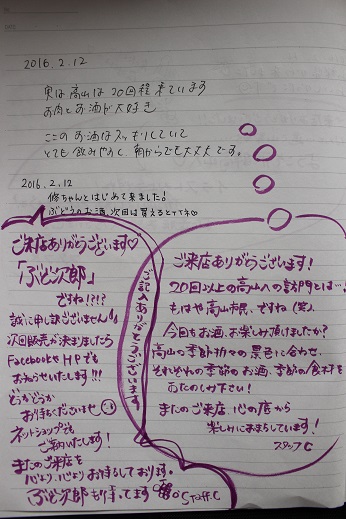 2016.2.12
実は高山は20回程来ています
お肉とお酒が大好き
ここのお酒はスッキリしていて
とても飲みやすく、朝からでも大丈夫です。
2016.2.12
修ちゃんとはじめて来ました♪
ぶどうのお酒、次回は買えるとイイネ♡
ご来店ありがとうございます♡
「ぶど次郎」
ですね!?!?
誠に申し訳ございません
次回販売が決まりましたら
FacebookやHPでも
お知らせいたします!!!
どうかどうか
お待ちくださいませ
ネットショップでも
ご案内いたします!
またのご来店を
心より、心よりお待ちしております。
ぶど次郎も待ってます
STAFF.C
ご記入ありがとうございます
ご来店ありがとうございます!
20回以上の高山への訪問とは…!
もはや高山市民、ですね(笑)。
今回もお酒、お楽しみ頂けましたか?
高山の季節折々の景色に合わせ、
それぞれの季節のお酒、季節の食材を
おたのしみ下さい!
またのご来店、心の底から
楽しみにおまちしています!
スタッフC